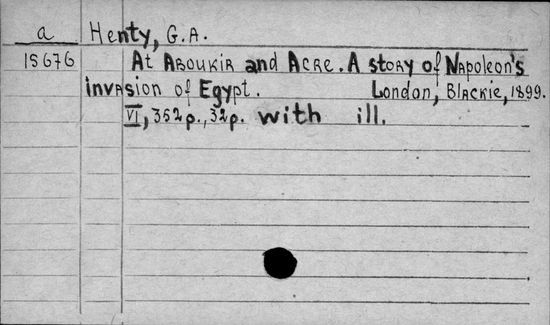 a Henty, G.A.
15676 At Aboukir and Acre. A story of Napoleon's
invasion of Egypt. London, Blackie, 1899.
VI, 352 p., 32 p. with ill.